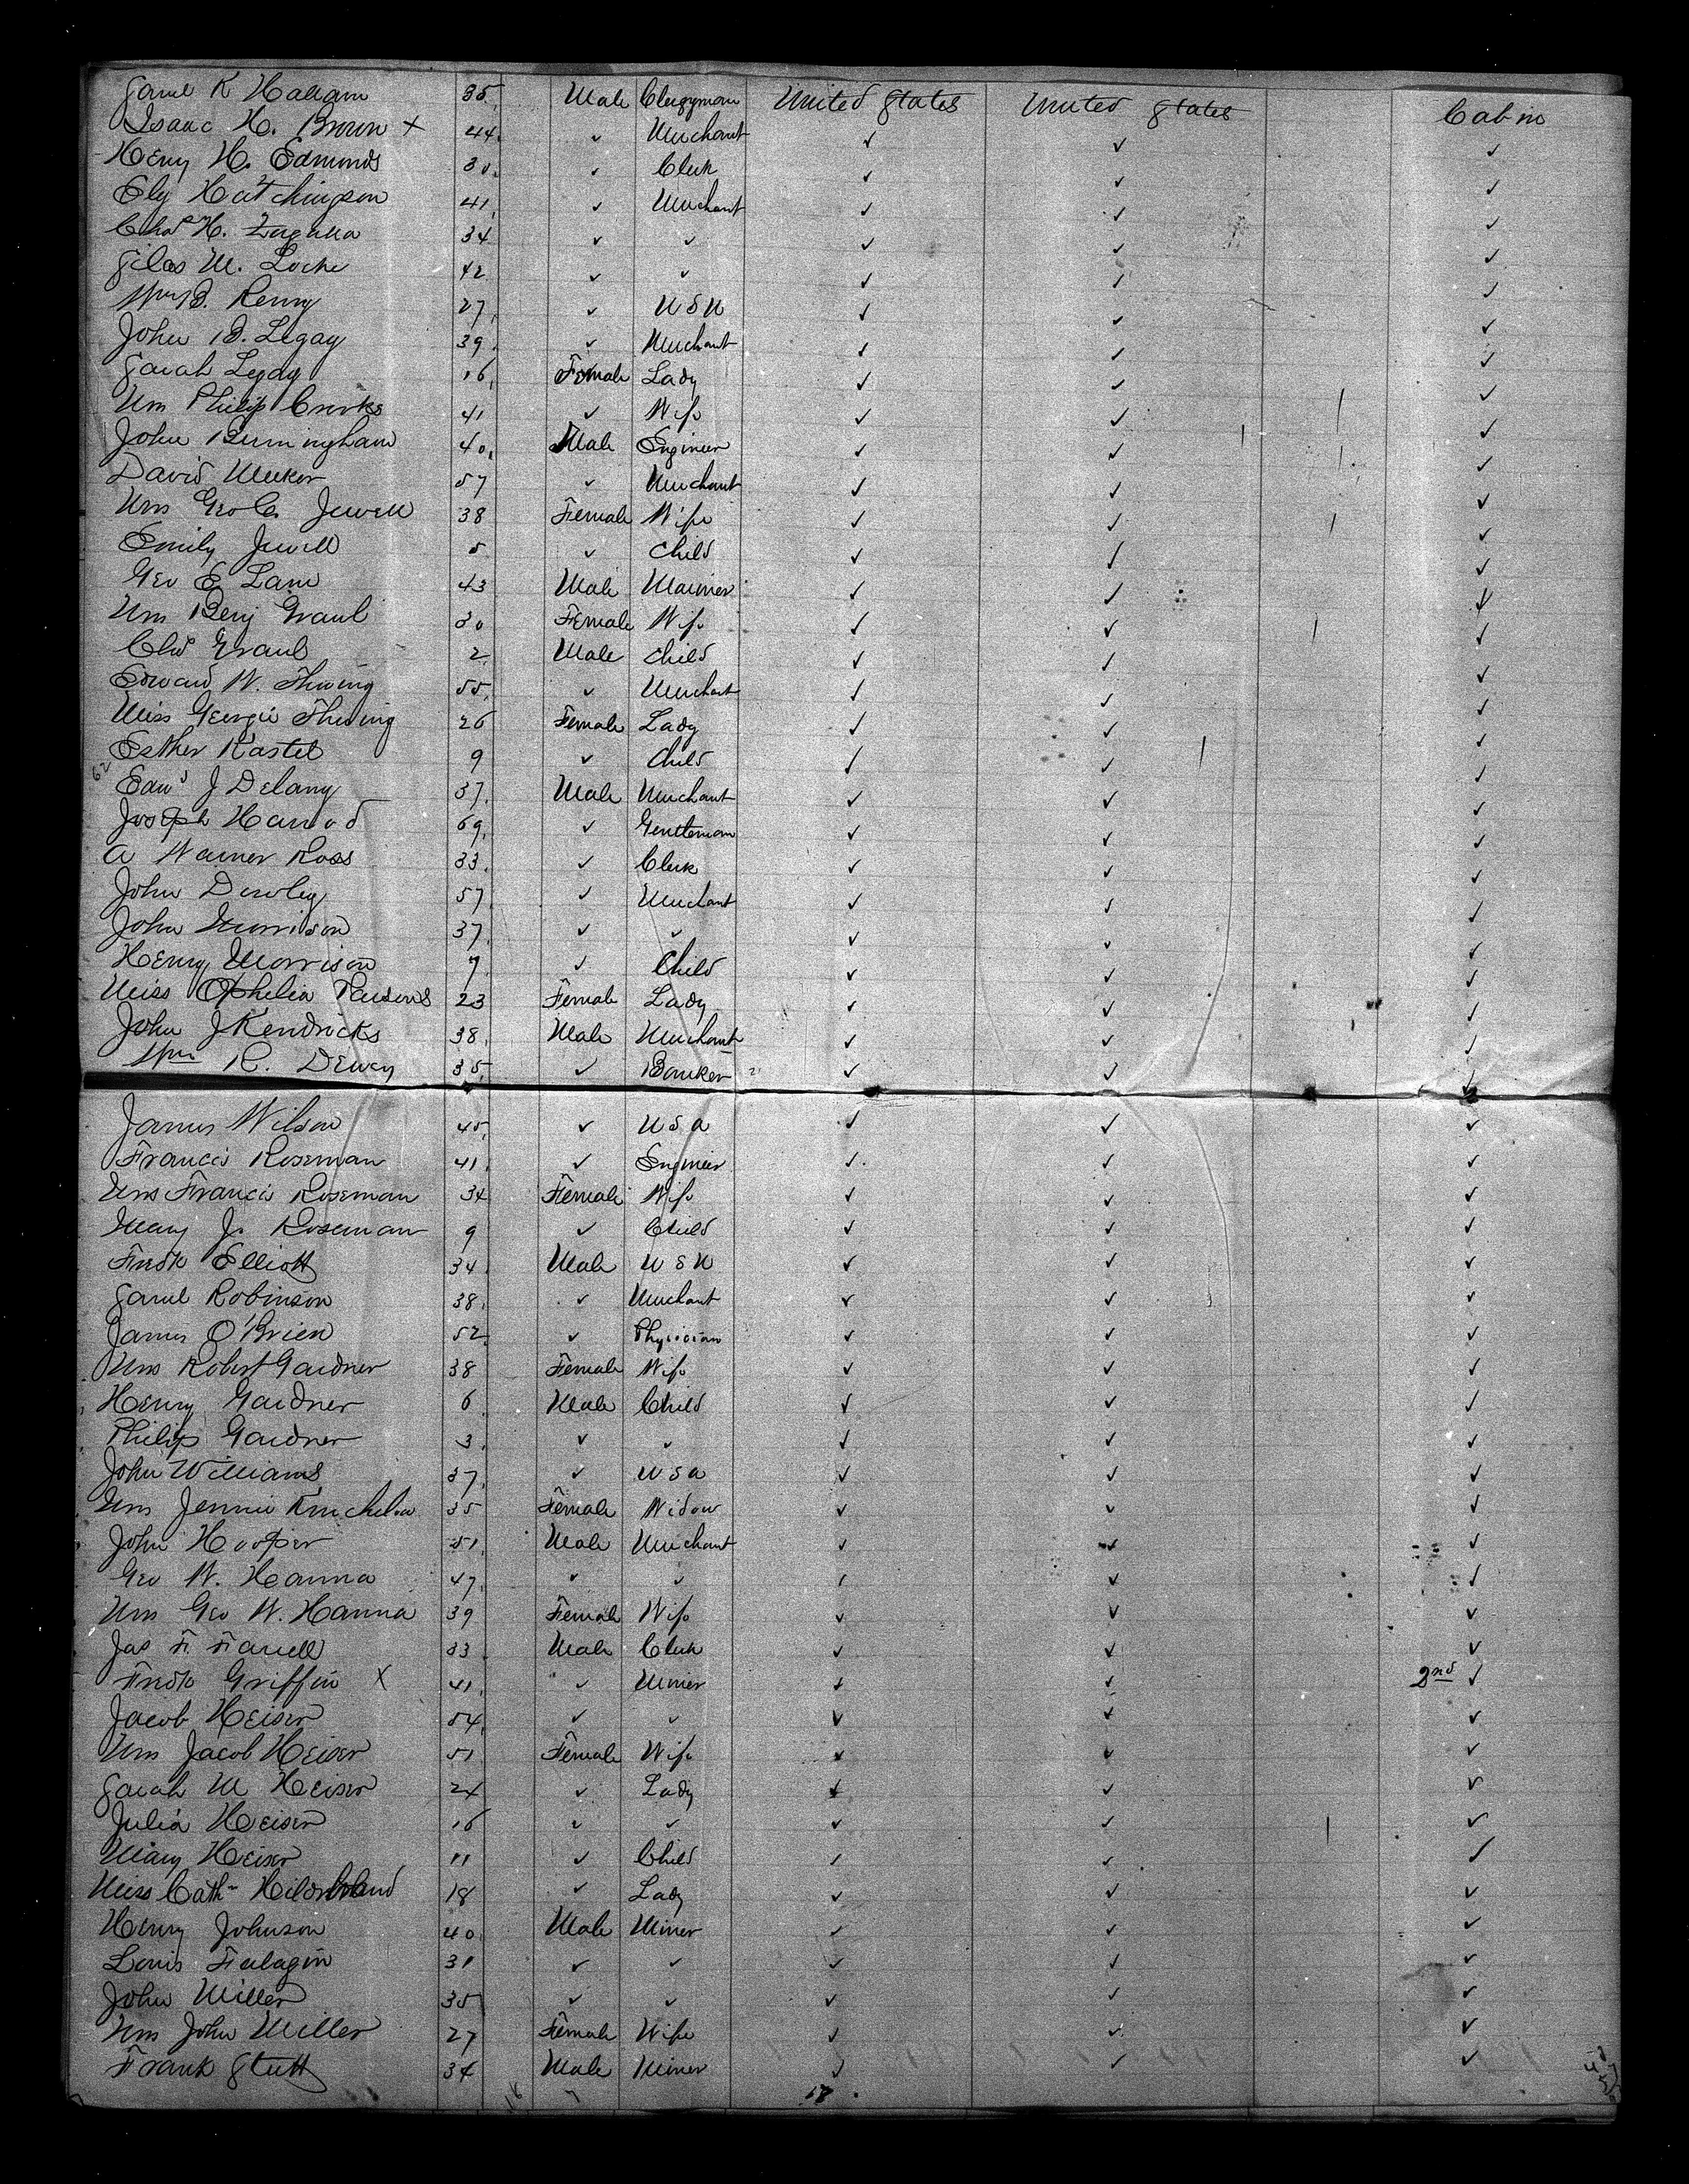 Saml R Hallam 35 Male Clergyman United States United States Cabin
Isaac H. Brown × 44 ✓ Merchant ✓ ✓ ✓
Henry H. Edmunds 30 ✓ Clerk ✓ ✓ ✓
Ely Hutchingson 41 ✓ Merchant ✓ ✓ ✓
Chas H. 34 ✓ ✓ ✓ ✓ ✓
Silas M. Locke 42 ✓ ✓ ✓ ✓ ✓
Wm B. Renny 27 ✓ U S N ✓ ✓ ✓
John B. Legay 39 ✓ Merchant ✓ ✓ ✓
Sarah Legay 16 Female Lady ✓ ✓ ✓
Mrs Philip Crooks 41 ✓ Wife ✓ ✓ ✓
John Bermingham 40 Male Engineer ✓ ✓ ✓
David Meeker 57 ✓ Merchant ✓ ✓ ✓
Mrs Geo C. Jewell 38 Female Wife ✓ ✓ ✓
Emily Jewell 5 ✓ Child ✓ ✓ ✓
Geo E Lane 43 Male Mariner ✓ ✓ ✓
Mrs Benj Graul 30 Female Wife ✓ ✓ ✓
Chs Graul 2 Male Child ✓ ✓ ✓
Edward W. Thwing 55 ✓ Merchant ✓ ✓ ✓
Miss Georgie Thwing 26 Female Lady ✓ ✓ ✓
Esther Kastel 9 ✓ Child ✓ ✓ ✓
62
Edwd J Delany 37 Male Merchant ✓ ✓ ✓
Joseph Harrod 69 ✓ Gentleman ✓ ✓ ✓
A Warner Ross 33 ✓ Clerk ✓ ✓ ✓
John Dowley 57 ✓ Merchant ✓ ✓ ✓
John Morrison 37 ✓ ✓ ✓ ✓ ✓
Henry Morrison 7 ✓ Child ✓ ✓ ✓
Miss Ophelia Parsons 23 Female Lady ✓ ✓ ✓
John J Kendricks 38 Male Merchant ✓ ✓ ✓
Wm R. Dewey 35 ✓ Banker ✓ ✓ ✓
James Wilson 45 ✓ U S A ✓ ✓ ✓
Francis Roseman 41 ✓ Engineer ✓ ✓ ✓
Mrs Francis Roseman 34 Female Wife ✓ ✓ ✓
Mary J. Roseman 9 ✓ Child ✓ ✓ ✓
Fredk Elliott 34 Male U S N ✓ ✓ ✓
Saml Robinson 38 ✓ Merchant ✓ ✓ ✓
James O'Brien 52 ✓ Physician ✓ ✓ ✓
Mrs Robert Gardner 38 Female Wife ✓ ✓ ✓
Henry Gardner 6 Male Child ✓ ✓ ✓
Philip Gardner 3 ✓ ✓ ✓ ✓ ✓
John Williams 37 ✓ U S A ✓ ✓ ✓
Mrs Jennie Kincheloe 35 Female Widow ✓ ✓ ✓
John Hooper 51 Male Merchant ✓ ✓ ✓
Geo W. Hanna 47 ✓ ✓ ✓ ✓ ✓
Mrs Geo W. Hanna 39 Female Wife ✓ ✓ ✓
Jas F. Farrell 33 Male Clerk ✓ ✓ ✓
Fredk Griffin X 41 ✓ Miner ✓ ✓ 2nd ✓
Jacob Heiser 54 ✓ ✓ ✓ ✓ ✓
Mrs Jacob Heiser 51 Female Wife ✓ ✓ ✓
Sarah M Heiser 24 ✓ Lady ✓ ✓ ✓
Julia Heiser 16 ✓ ✓ ✓ ✓ ✓
Mary Heiser 11 ✓ Child ✓ ✓ ✓
Miss Cath Hildebrand 18 ✓ Lady ✓ ✓ ✓
Henry Johnson 40 Male Miner ✓ ✓ ✓
Louis Fulagin 31 ✓ ✓ ✓ ✓ ✓
John Miller 35 ✓ ✓ ✓ ✓ ✓
Mrs John Miller 27 Female Wife ✓ ✓ ✓
Frank Stutt 34 Male Miner ✓ ✓ ✓